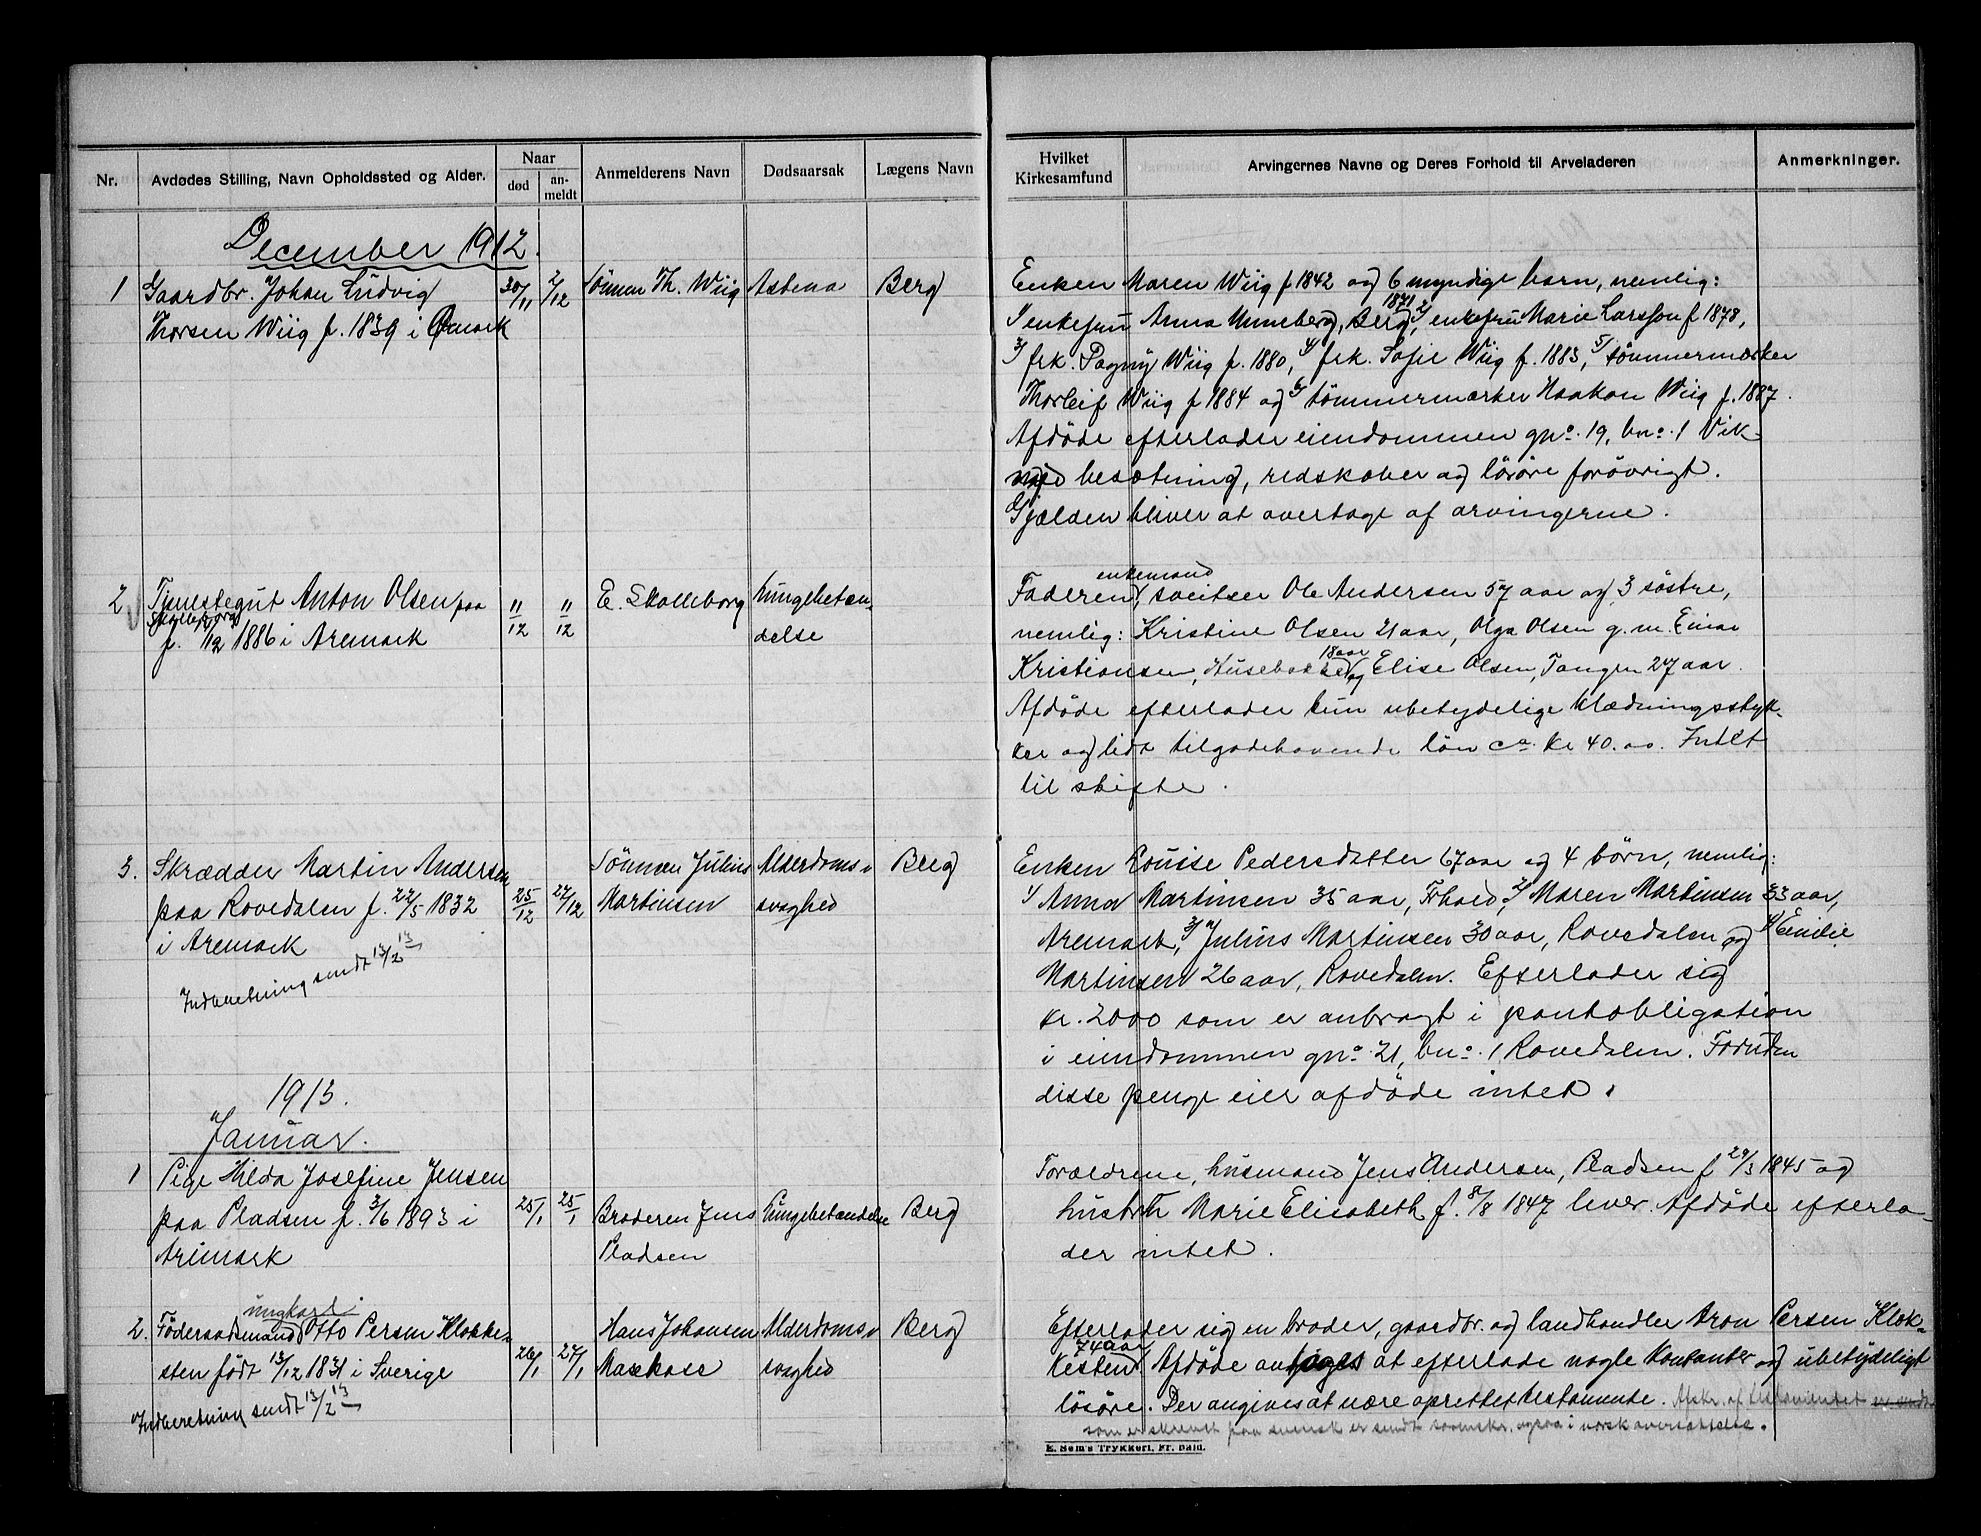 Nr.
Avdødes Stilling, Navn Opholdssted og Alder.
Naar
død
an-
meldt
Anmelderens Navn
Dødsaarsak
Lægens Navn
December 1912.
1 Gaardbr. Johan Ludvig 30/11 2/12 Sønnen Th. Wiig Astma Berg
Thorsen Wiig f. 1839 i Ømark
2 Tjenestegut Anton Olsen paa 11/12 11/12 E. Skolleborg Lungebetæn-
Skolleborg delse
f. 1886 i Aremark
3. Skrædder Martin Andersen Sønnen Julius Alderdoms- Berg
paa Rovedalen f. 22/5 1832 25/12 27/12 Martinsen svaghed
i Aremark
Indberetning sendt 13/2 13
1913.
Januar.
1 Pige Hilda Josefine Jensen
paa Pladsen f. 3/6 1893 i 25/1 25/1 Broderen Jens Lungebetændelse Berg
Aremark Pladsen
ungkarl
2. Föderaadsmand Otto Persen Klokke- Hans Johansen Alderdoms- Berg
sten født 13/12 1831 i Sverige 26/1 27/1 svaghed
Indberetning sendt 13/2 13
Hvilket
Kirkesamfund
Arvingernes Navne og Deres Forhold til Arveladeren
Anmerkninger.
Enken Maren Wiig f 1842 og 6 myndige barn, nemlig:
1/ enkefru Anna Unneberg, Berg, 1871 2/ enkefru Marie Larsson f 1878,
3/ frk. Dagny Wiig f. 1880, 4/ frk. Sofie Wiig f. 1883, 5/ tömmermærker
Thorleif Wiig f 1884 og 6/ tömmermærker Haakon Wiig f. 1887.
Afdöde efterlader eiendommen gno. 19, bno. 1 Vik
med besætning, redskaber og lösöre forövrigt.
Gjælden bliver at overtage af arvingerne.
enkemand
Faderen, sveitser Ole Andersen 57 aar og 3 söstre,
nemlig: Kristine Olsen 21 aar, Olga Olsen g. m. Einar
18 aar
Kristiansen, og Elise Olsen, Tangen 27 aar.
Afdöde efterlader kun ubetydelige klædningsstyk-
ker og lidt tilgodehavende lön ca. kr 40.00. Intet
til skifte.
Enken Louise Pedersdatter 67 aar og 4 börn, nemlig:
1/ Anna Martinsen 35 aar, 2/ Maren Martinsen 33 aar,
Aremark, 3/ Julius Martinsen 30 aar, Rovedalen og 4/ Emilie
Martinsen 26 aar, Rovedalen. Efterlader sig
kr. 2000 som er anbragt i pantobligation
i eiendommen gno. 21, bno. 1 Rovedalen. Foruden
disse penge eier afdöde intet.
Forældrene, husmand Jens Andersen, Pladsen f 29/3 1845 og
hustru Marie Elisabeth f. 8/8 1847 lever. Afdöde efterla-
der intet.
Efterlader sig en broder, gaardbr. og landhandler Aron Persen Klok-
74 aar
kesten. Afdöde antages at efterlade nogle kontanter og ubetydeligt
lösöre. Der angives at være oprettet testamente. Afskr. af testamentet er sendt
som er skrevet paa svensk er sendt sorenskr. ogsaa i norsk oversættelse.
E. Sem's Trykkeri, Fr.hald.